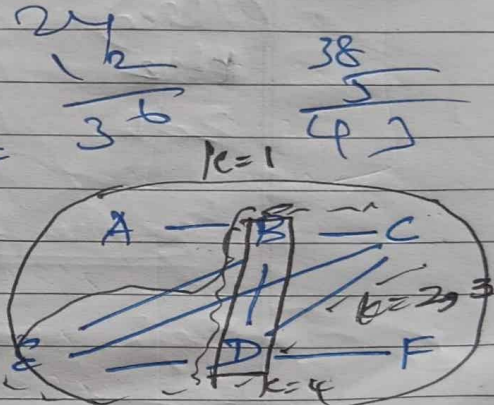 24
12
36
38
5
43
k=1
A B C
k=2,3
E D F
k=4